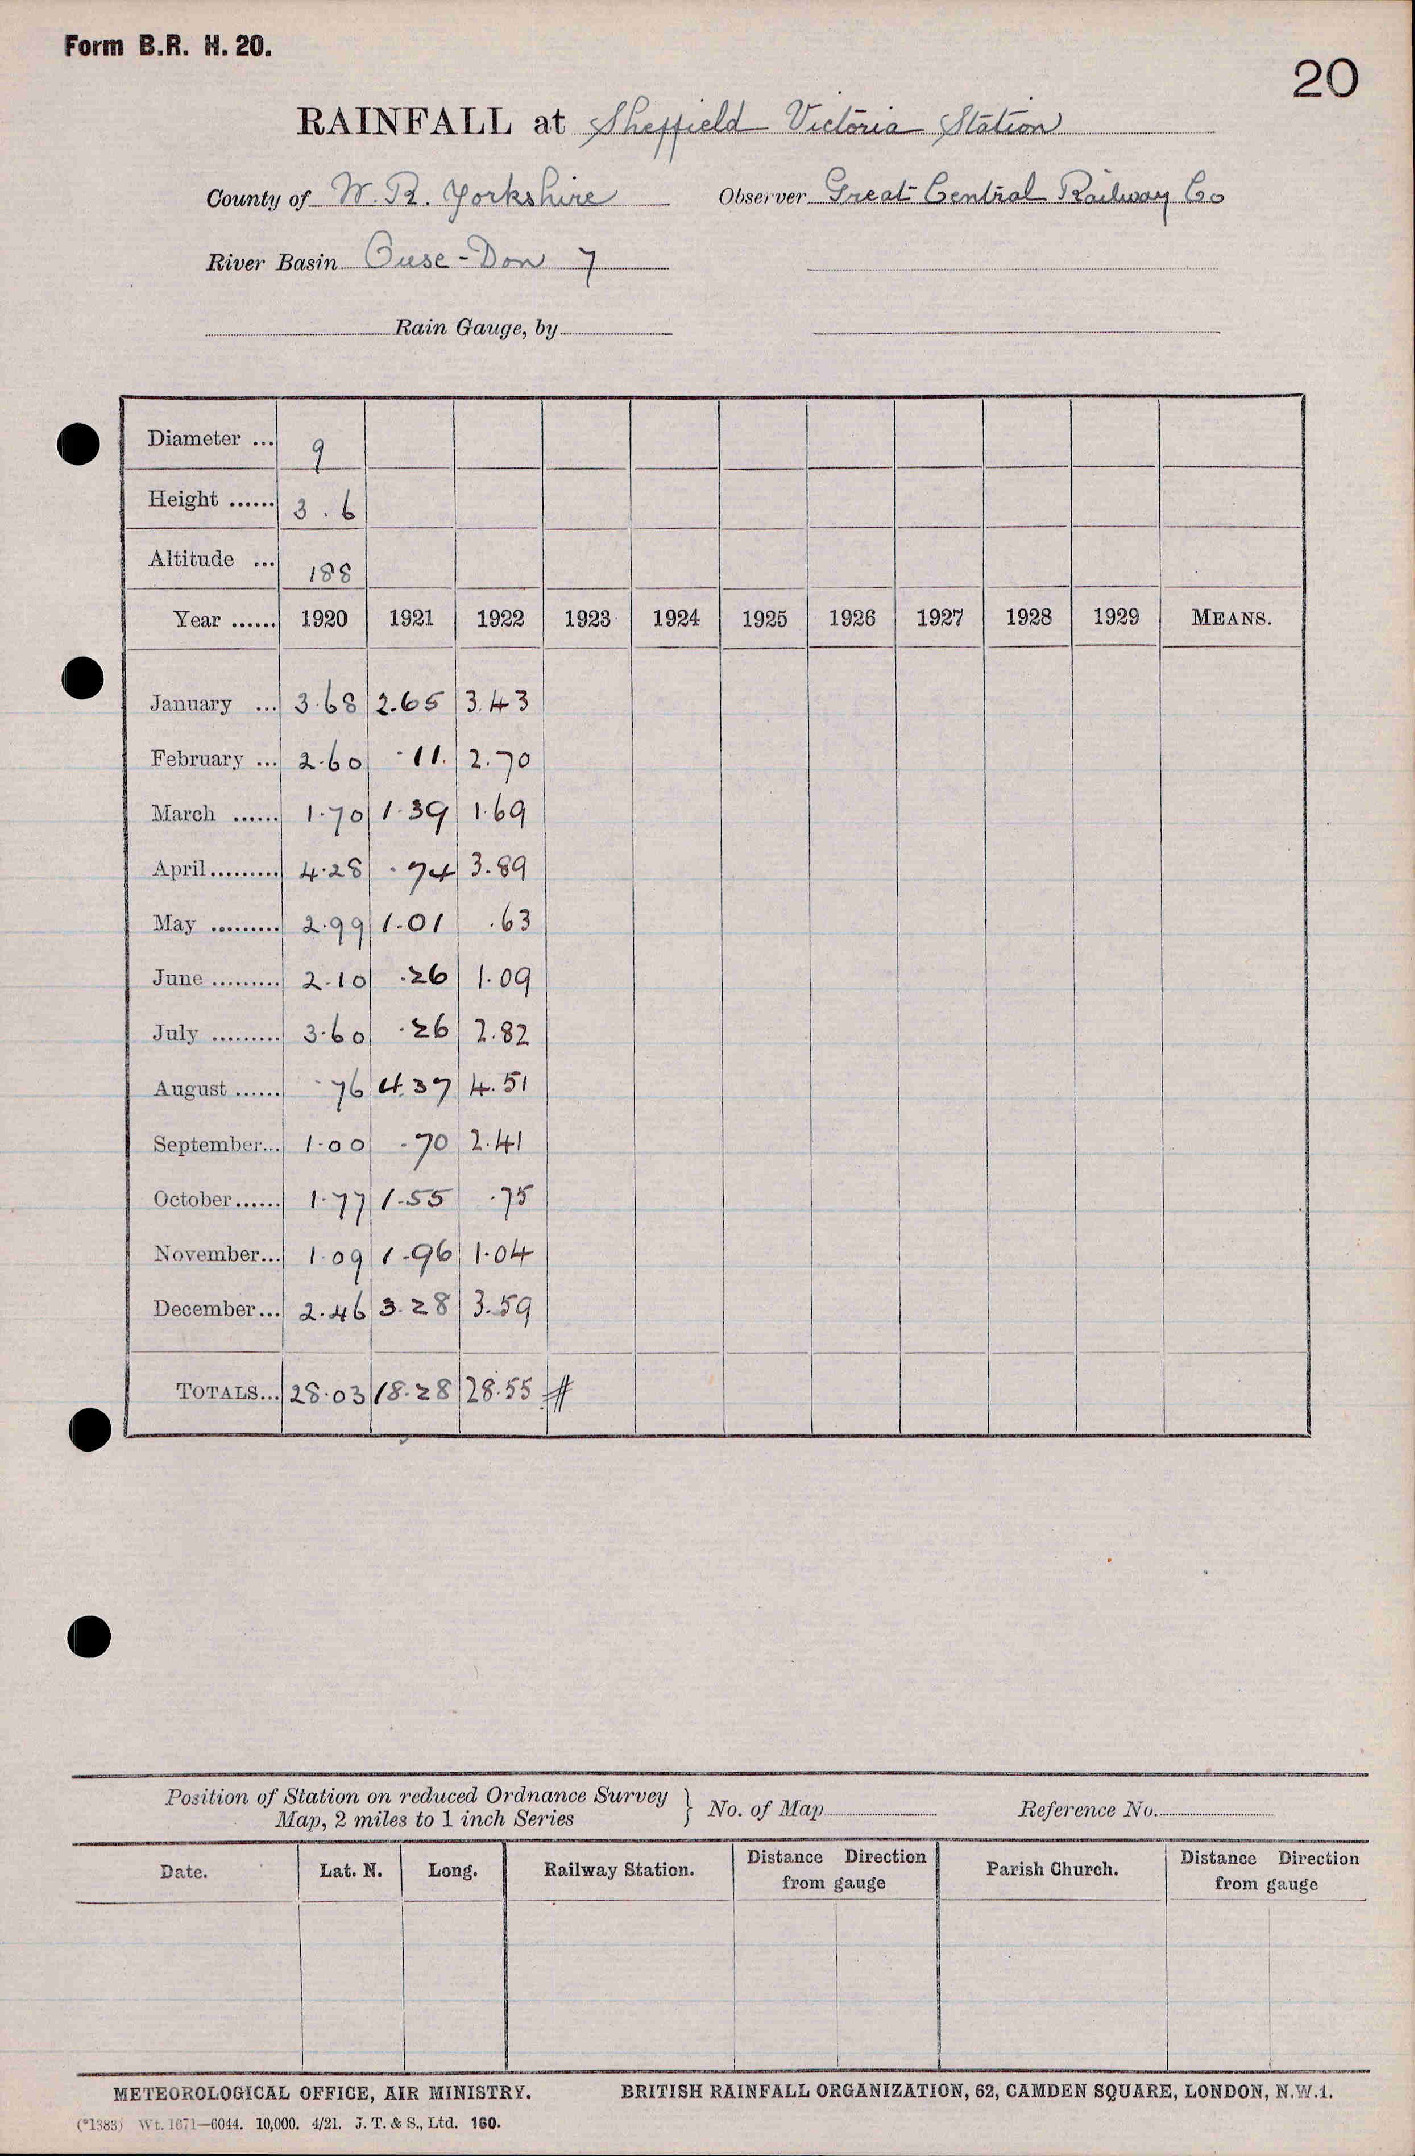 Form B.R. H. 20.
20
RAINFALL at Sheffield Victoria Station
County of W. R. Yorkshire Observer Great Central Railway Co
River Basin Ouse - Don 7
Rain Gauge, by
Diameter ... 9
Height ...... 3 . 6
Altitude ... 188
Year ...... 1920 1921 1922 1923 1924 1925 1926 1927 1928 1929 MEANS.
January ... 3.68 2.65 3.43
February ... 2.60 .11. 2.70
March ...... 1.70 1.39 1.69
April......... 4.28 .74 3.89
May ......... 2.99 1.01 .63
June ......... 2.10 .26 1.09
July ......... 3.60 .26 2.82
August ...... .76 4.37 4.51
September... 1.00 .70 2.41
October...... 1.77 1.55 .75
November... 1.09 1.96 1.04
December... 2.46 3.28 3.59
TOTALS... 28.03 18.28 28.55 #
Position of Station on reduced Ordnance Survey
Map, 2 miles to 1 inch Series } No. of Map Reference No.
Date. Lat. N. Long. Railway Station. Distance Direction from gauge Parish Church. Distance Direction from gauge
METEOROLOGICAL OFFICE, AIR MINISTRY. BRITISH RAINFALL ORGANIZATION, 62, CAMDEN SQUARE, LONDON, N.W.1.
(*1383) Wt. 1671—6044. 10,000. 4/21. J. T. & S., Ltd. 160.